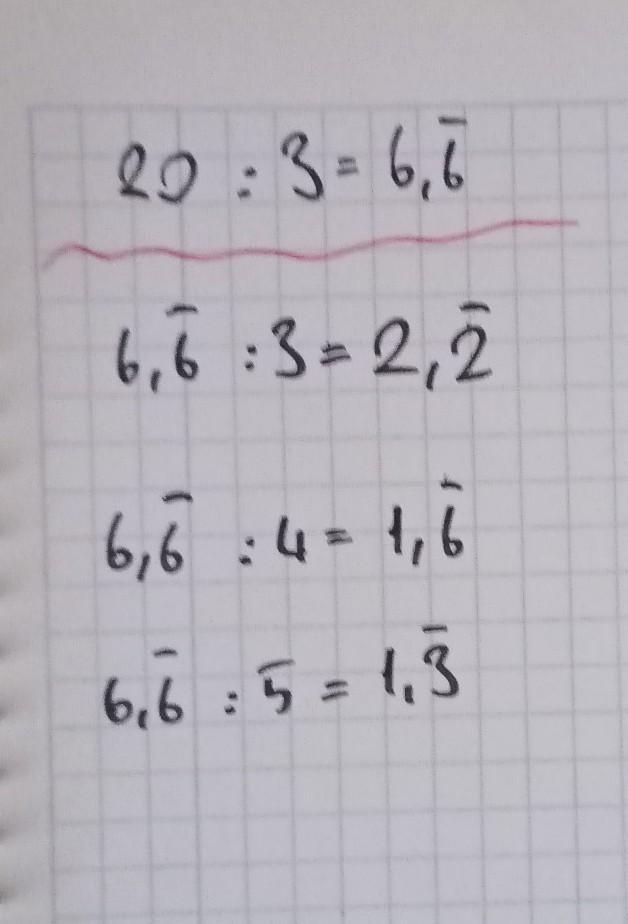 20 : 3 = 6,6̅
6,6̅ : 3 = 2,2̅
6,6̅ : 4 = 1,6̅
6,6̅ : 5 = 1,3̅